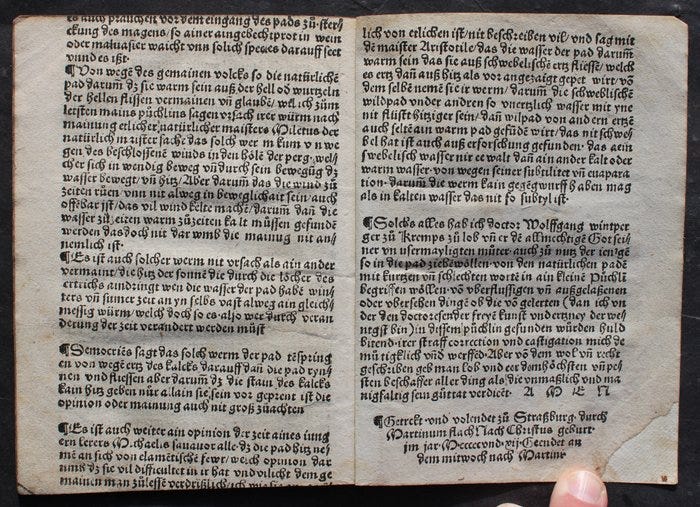 es auch prauchen vor dem eingang des pads zů sterꝛ
ckung des magens/ so ainer aingebecht prot in wein
oder maluasier waicht vnn solich species darauff seet
vnnd es ißt·
¶Von wegē des gemainen volcks so die natürlichē
pad darum̄ dz sie warm sein auß der hell od wurtzeln
der hellen flissen vermainen vn̄ glaubē/ welich zům
letsten mains püchlins sagen
mainung etlicher natürlicher maisters Miletus der
natürlich maister sach
gen des beschlossenē winds in den hölē der perg/ welꝛ
cher sich in wendig beweg vn̄ durch sein bewegūg dz
wasser bewegt/ vn̄ hitz/ Aber darum̄ das die wind zů
zeiten růen/ vnn nit alweg in beweglichait sein/ auch
offēbar ist/ das vil wind kelte macht/ darum̄ dan̄ die
wasser zů zeiten warm zů zeiten kalt müssen gefundē
werden das doch nit dar vmb die mainūg nit anꝛ
nemlich ist·
¶Es ist auch solcher werm nit vrsach als ain ander
vermaint/ die hitz der sonnē die durch die löcher des
erttrichs aindringt wen die wasser der pad habē winꝛ
ters vn̄ sumer zeit an yn selbs vast alweg ain gleichꝛ
messig würm/ welch doch so es also wer durch veran
derung der zeit verandert werden müst
¶Democrites sagt das solch werm der pad
en von wegē ertz des kalcks darauff dan̄ die pad rynꝛ
nen vnd fliessen aber darum̄ dz die stain des kalcks
kain hitz geben nůr allain sie sein vor geprent ist die
opinion oder mainung auch nit groß zů achten
¶Es ist auch weiter ain opinion der zeit aines iung
ern lerers Michaelis sauanarole/ dz die pad hitz neꝛ
mē an sich von elamētischē fewr/ welch opinion dar
vmb dz sie vil difficultet in ir hat vnd vilicht dem geꝛ
mainen man zů lessē verdrißlich
lich von etlichen ist/ nit beschreiben vil/ vnd sag mit
dē maister Aristotile/ das die wasser der pad darum̄
warm sein das sie auß schwebelischē ertz fliessē/ welch
es ertz dan̄ auß hitz als vor angezaigt gepet wirt/ vō
dem selbē nemē sie ir werm/ darum̄ die schweblischē
wildpad vnder andren so vnertzlich wasser mit yne
nit flüsst hitziger sein/ dan̄ wilpad von andern ertzē
auch seltē ain warm pad gefūdē wirt/ das nit schweꝛ
bel hat ist auch auß erforschung gefunden· das aein
swebelisch wasser nit ee walt dan̄ ain ander kalt oder
warm wasser· von wegen seiner subtilitet vn̄ euaporaꝛ
tion· darum̄ die werm kain gegēwurff haben mag
als in kalten wasser das nit so subtyl ist·
¶Solchs alles hab ich doctor Wolffgang wintper
ger zů Kremps zů lob vn̄ er dē allmechtigē Got seiꝛ
ner vn usermayligten můter· auch zů nutz der ienige
so in die pad ziehē wöllen· von den natürlichen padē
mit kurtzen vn̄ schlechten wortē in ain kleine Püchli
begriffen wöllen· vō vberflussigen vn̄ außgelaßenen
oder vbersehen dingē ob die vō gelerten (dan ich vnꝛ
der den doctoren der freyē kunst vnd ertzney der weꝛ
nigst bin) in dissem püchlin gefunden würden huld
bitend· irer straff correction vnd castigation mich deꝛ
mütigklich vnd werffend· Aber vō dem wolk vn̄ recht
geschriben geb man lob vnd eer dem höchsten vn̄ peiꝛ
sten beschaffer aller ding als die vnmaßlich vnd maꝛ
nigfaltig sein güttat verdiēt· A M E N
¶Getrckt vnd volendet zů Straßburg· durch
Martinum flach Nach Christus geburt
im jar Mcccccvnd·vij· Geendet an
dem mitwoch nach Martini